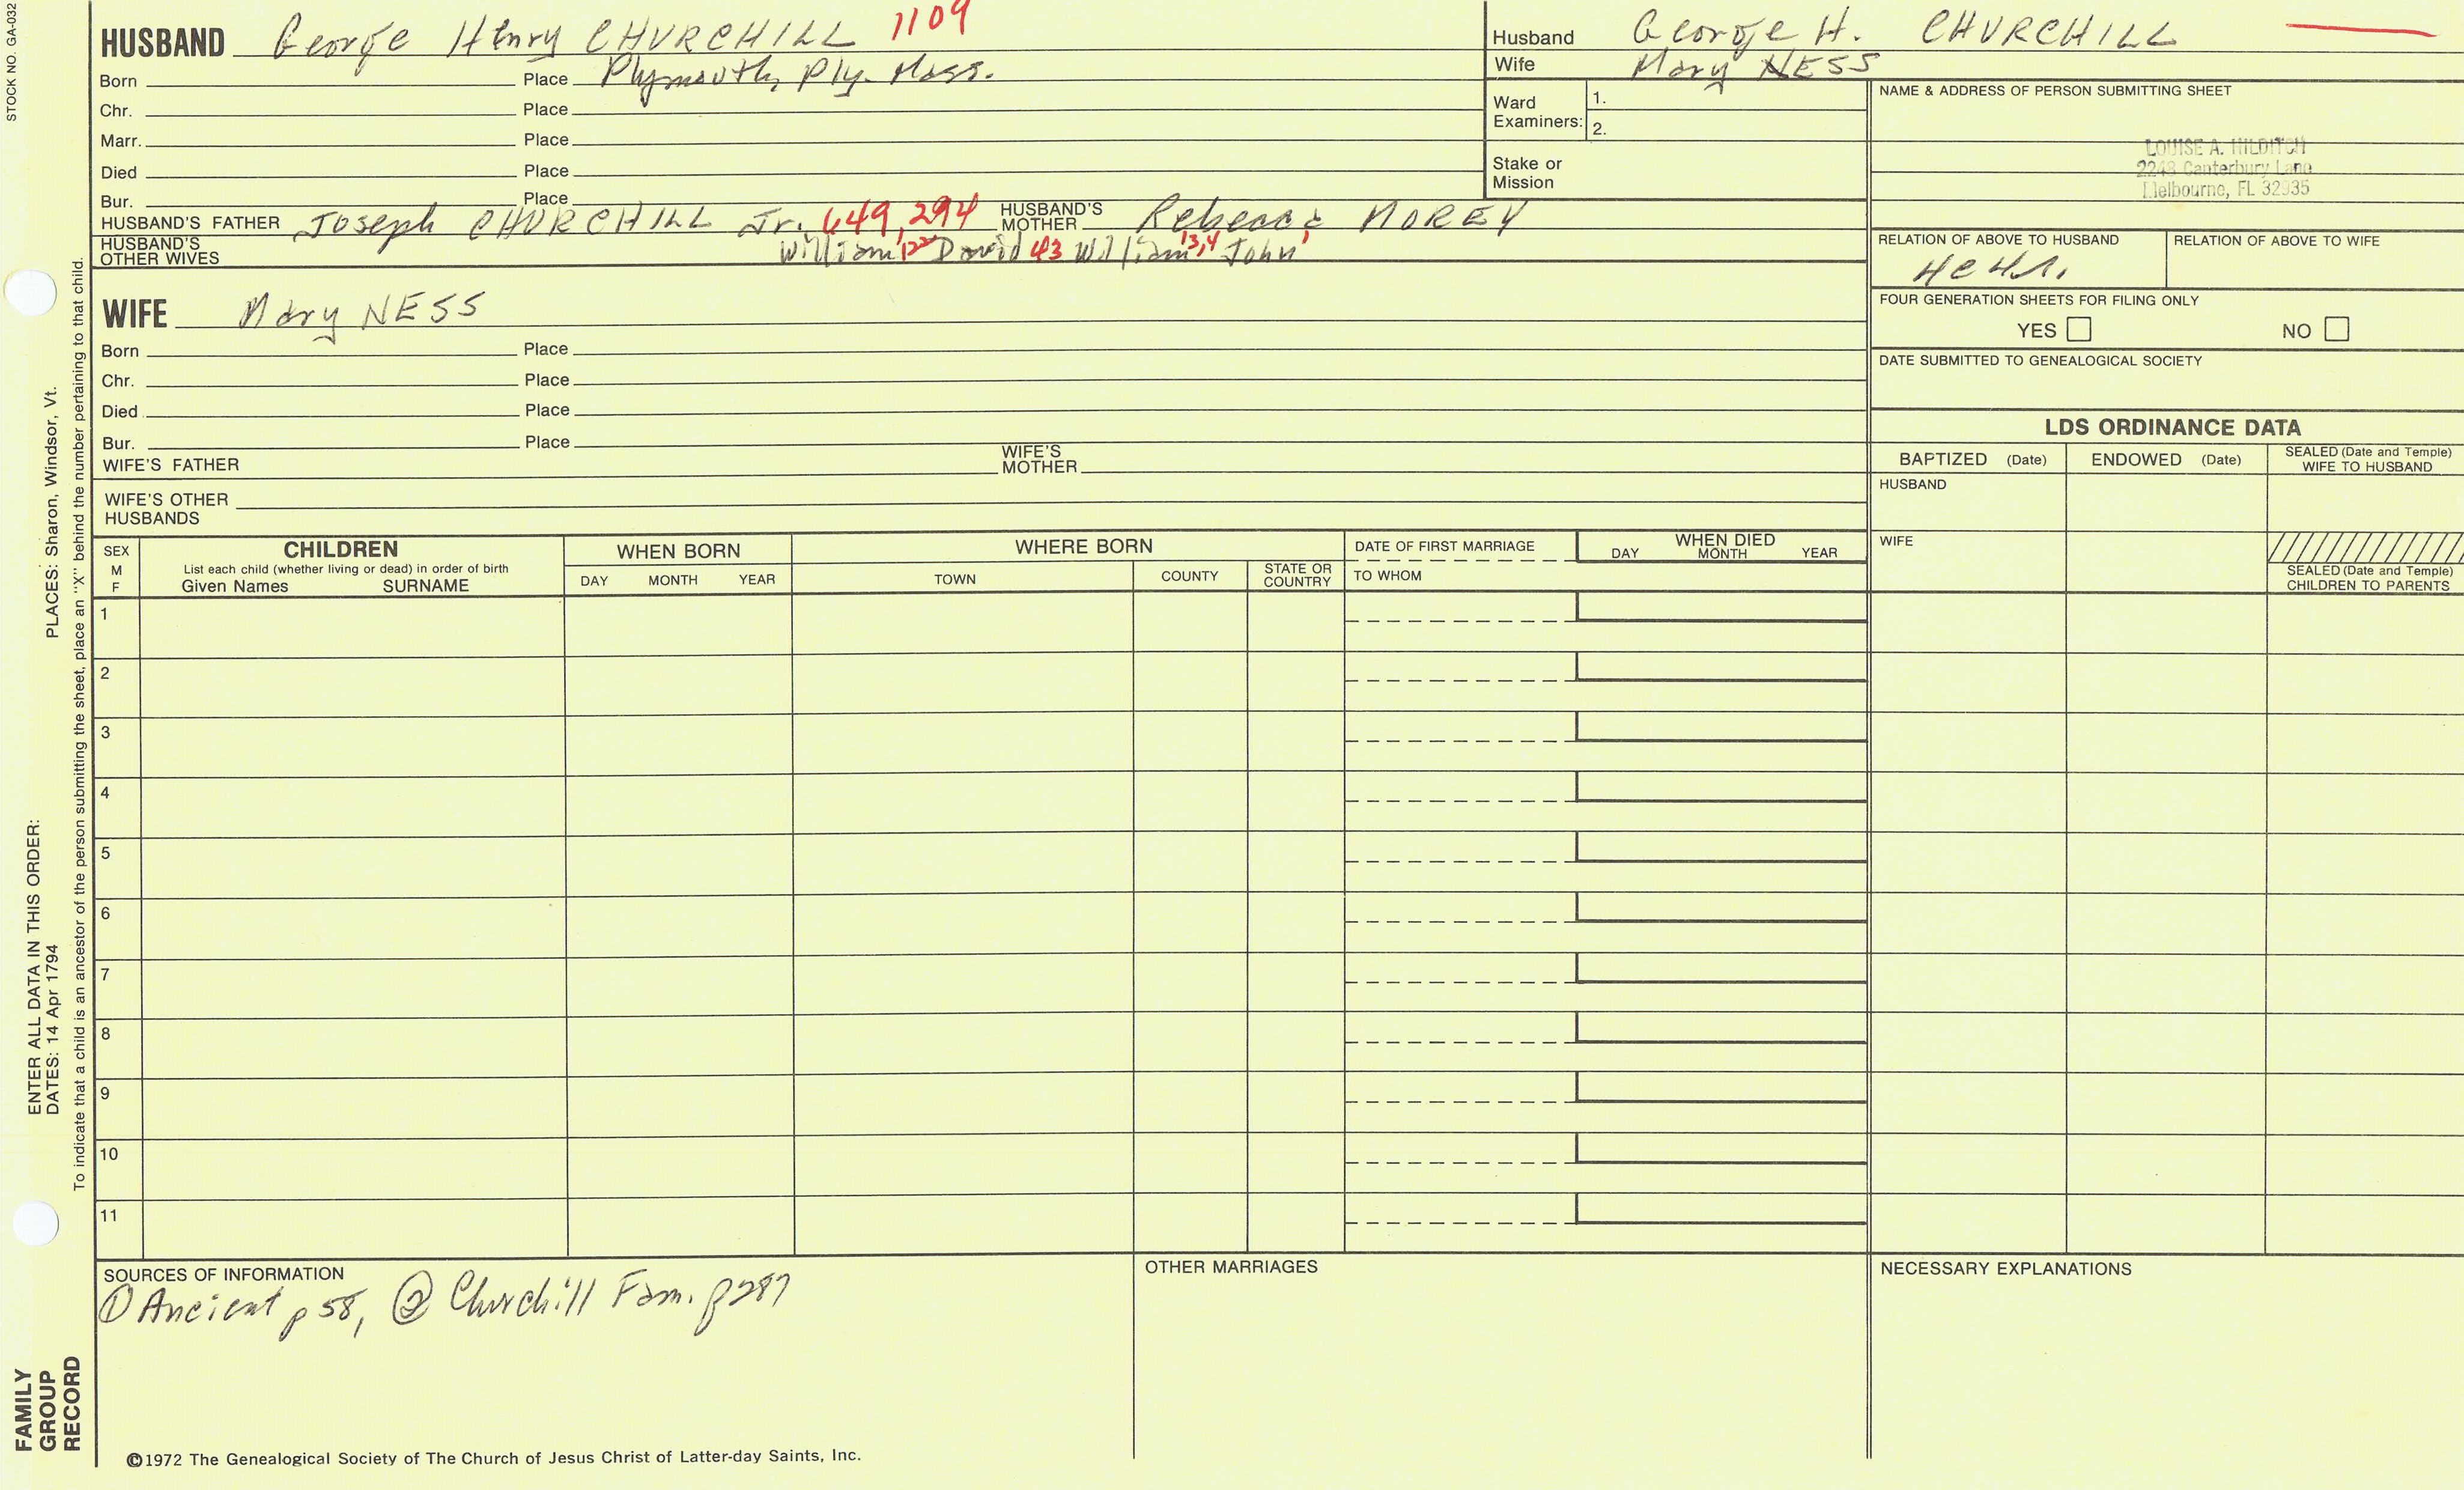 STOCK NO. GA-032
HUSBAND George Henry CHURCHILL 1109
Born Place Plymouth, Ply. Mass.
Chr. Place
Marr. Place
Died Place
Bur. Place
HUSBAND'S FATHER Joseph CHURCHILL Jr. 649,294 HUSBAND'S MOTHER Rebecca MOREY
HUSBAND'S OTHER WIVES William David 43 William 13,4 John 1
Husband George H. CHURCHILL
Wife Mary NESS
Ward Examiners: 1.
2.
Stake or Mission
NAME & ADDRESS OF PERSON SUBMITTING SHEET
LOUISE A. HILDITCH
2248 Canterbury Lane
Melbourne, FL 32935
RELATION OF ABOVE TO HUSBAND RELATION OF ABOVE TO WIFE
FOUR GENERATION SHEETS FOR FILING ONLY
YES NO
DATE SUBMITTED TO GENEALOGICAL SOCIETY
WIFE Mary NESS
Born Place
Chr. Place
Died Place
Bur. Place
WIFE'S FATHER WIFE'S MOTHER
WIFE'S OTHER HUSBANDS
LDS ORDINANCE DATA
BAPTIZED (Date) ENDOWED (Date) SEALED (Date and Temple) WIFE TO HUSBAND
HUSBAND
WIFE
SEALED (Date and Temple) CHILDREN TO PARENTS
SEX M F
CHILDREN
List each child (whether living or dead) in order of birth
Given Names SURNAME
WHEN BORN
DAY MONTH YEAR
WHERE BORN
TOWN COUNTY STATE OR COUNTRY
DATE OF FIRST MARRIAGE
TO WHOM
WHEN DIED
DAY MONTH YEAR
1
2
3
4
5
6
7
8
9
10
11
SOURCES OF INFORMATION
① Ancient p 58, ② Churchill Fam. p 287
OTHER MARRIAGES
NECESSARY EXPLANATIONS
©1972 The Genealogical Society of The Church of Jesus Christ of Latter-day Saints, Inc.
FAMILY GROUP RECORD
ENTER ALL DATA IN THIS ORDER:
DATES: 14 Apr 1794
PLACES: Sharon, Windsor, Vt.
To indicate that a child is an ancestor of the person submitting the sheet, place an "X" behind the number pertaining to that child.